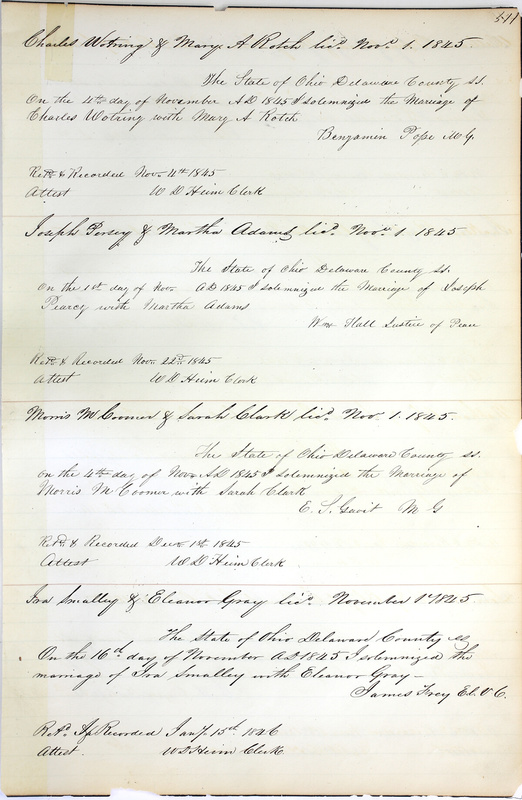 Charles Wotring & Mary A Rotch licd. Novr. 1. 1845
The State of Ohio Delaware County ss.
On the 4th day of November AD 1845 I solemnized the Marriage of
Charles Wotring with Mary A Rotch
Benjamin Pope M.G.
Retd. & Recorded Nov. 4th 1845
Attest W D Heim Clerk
Joseph Persey & Martha Adams licd. Novr. 1 1845
The State of Ohio Delaware County ss.
On the 1st day of Nov. AD 1845 I solemnized the Marriage of Joseph
Pearcy with Martha Adams
Wm Hall Justice of Peace
Retd. & Recorded Nov. 22nd 1845
Attest W D Heim Clerk
Morris McCoomer & Sarah Clark licd. Nov. 1. 1845.
The State of Ohio Delaware County ss.
On the 4th day of Nov. AD 1845 I solemnized the Marriage of
Morris McCoomer with Sarah Clark
E. S. Gavit M G
Retd. & Recorded Dec. 1st 1845
Attest W D Heim Clerk
Ira Smalley & Eleanor Gray licd. November 1st 1845
The State of Ohio Delaware County ss
On the 16th day of November AD 1845 I solemnized the
marriage of Ira Smalley with Eleanor Gray
James Frey
Retd. & Recorded Jany. 15th 1846
Attest. W D Heim Clerk